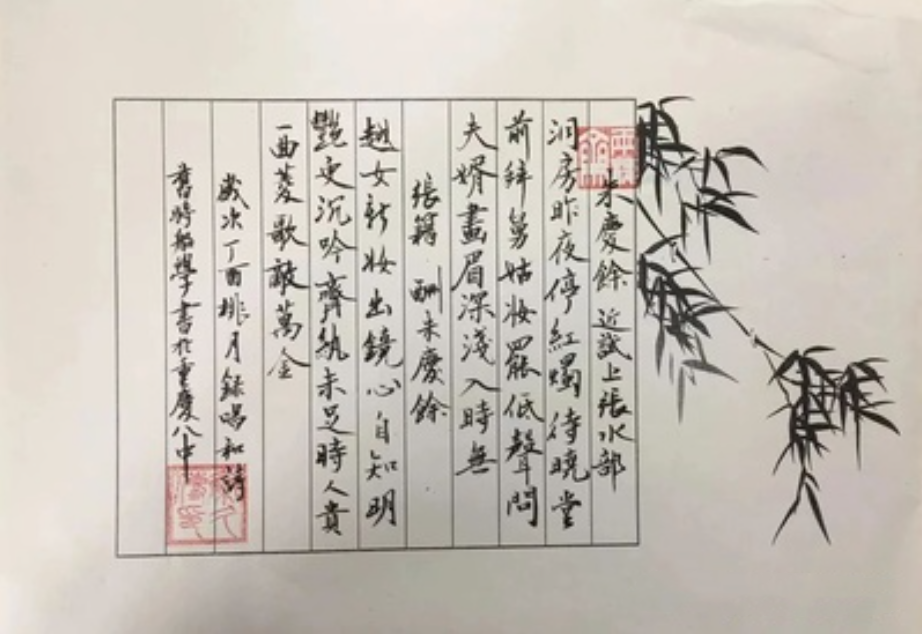 朱慶餘 近試上張水部
洞房昨夜停紅燭待曉堂
前拜舅姑妝罷低聲問
夫婿畫眉深淺入時無
張籍 酬朱慶餘
越女新妝出鏡心自知明
艷更沉吟齊紈未足時人貴
一曲菱歌敵萬金
歲次丁酉桃月錄唱和詩
學書於重慶八中